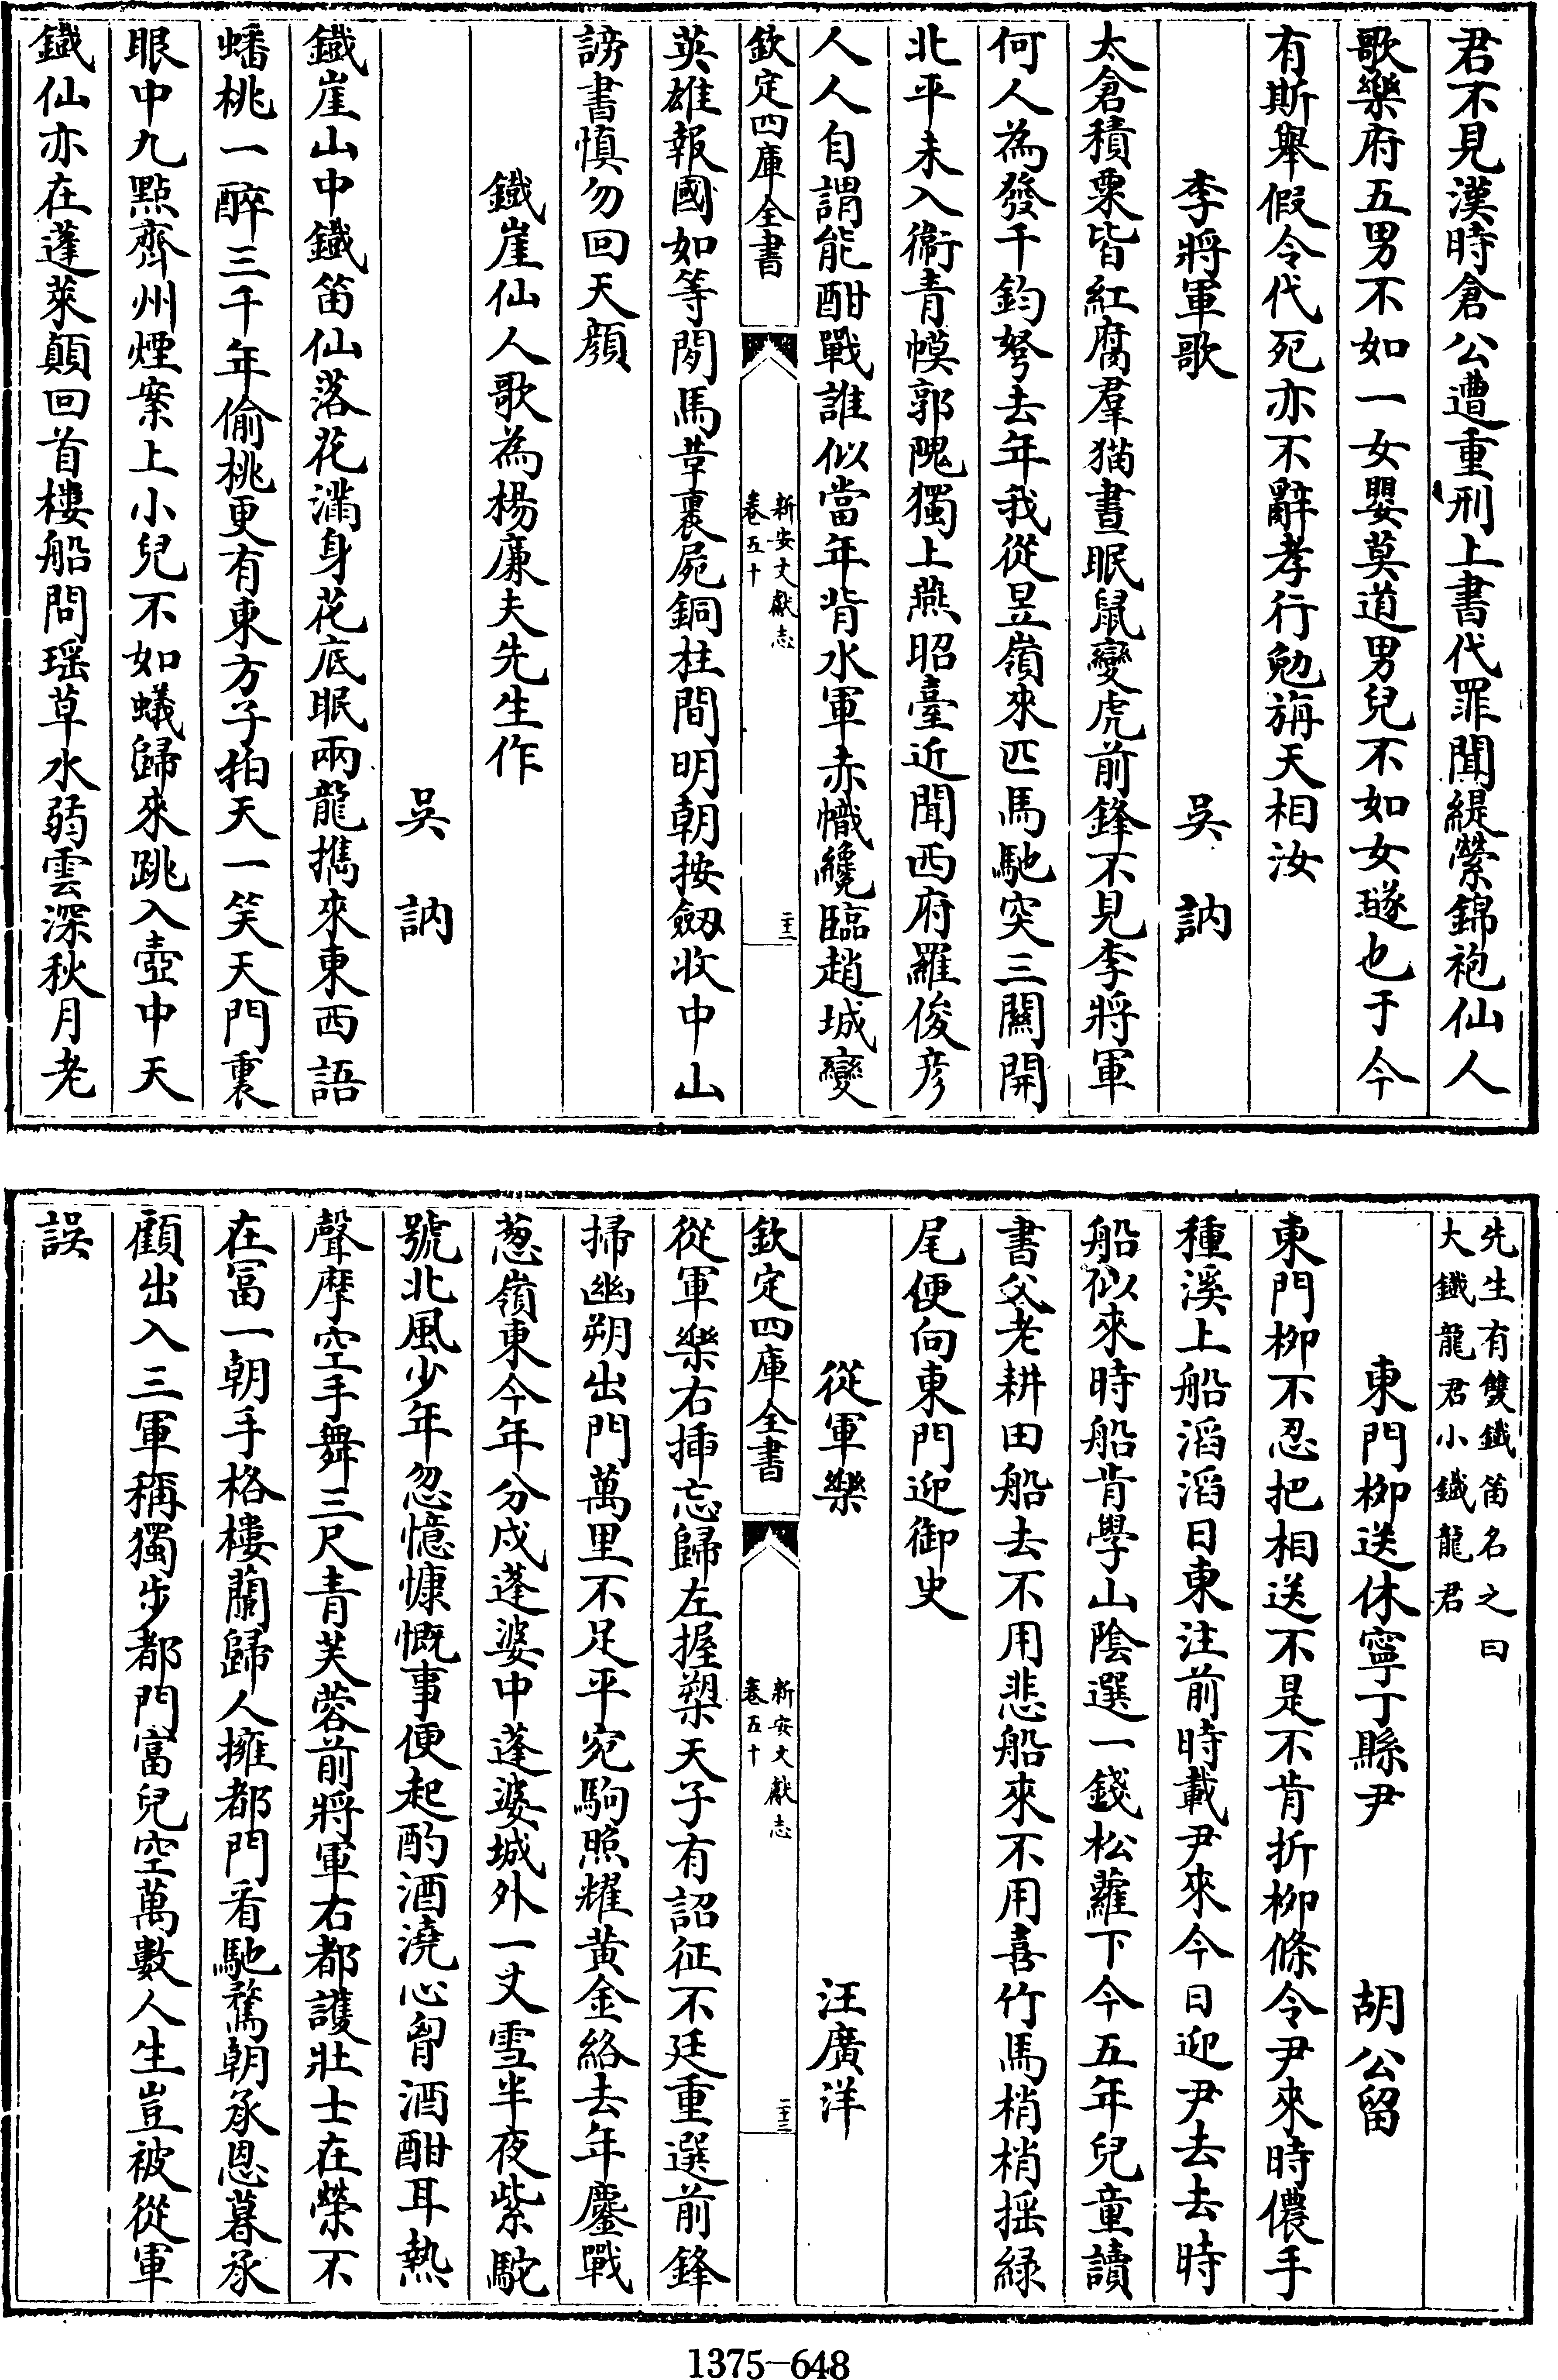 君不見漢時倉公遭重刑上書代罪聞緹縈錦袍仙人
歌樂府五男不如一女嬰莫道男兒不如女璲也于今
有斯舉假令代死亦不辭孝行勉旃天相汝
李將軍歌 吳訥
太倉積粟皆紅腐羣猫晝眠鼠變虎前鋒不見李將軍
何人為發千鈞弩去年我從昱嶺來匹馬馳突三關開
北平未入衞青幙郭隗獨上燕昭臺近聞西府羅俊彦
人人自謂能酣戰誰似當年背水軍赤幟纔臨趙城變
欽定四庫全書 新安文獻志 卷五十 二十二
英雄報國如等閒馬革裹屍銅柱間明朝按劔收中山
謗書慎勿回天顔
鐵崖仙人歌為楊廉夫先生作
吳訥
鐵崖山中鐵笛仙落花滿身花底眠兩龍攜來東西語
蟠桃一醉三千年偷桃更有東方子拍天一笑天門裏
眼中九點齊州煙案上小兒不如蟻歸來跳入壺中天
鐵仙亦在蓬萊顛回首樓船問瑶草水弱雲深秋月老
先生有雙鐵笛名之曰
大鐵龍君小鐵龍君
東門栁送休寧丁縣尹 胡公留
東門栁不忍把相送不是不肯折栁條令尹來時儂手
種溪上船滔滔日東注前時載尹來今日迎尹去去時
船似來時船肯學山陰選一錢松蘿下今五年兒童讀
書父老耕田船去不用悲船來不用喜竹馬梢梢揺緑
尾便向東門迎御史
從軍樂 汪廣洋
欽定四庫全書 新安文獻志 卷五十 二十三
從軍樂右揷忘歸左握槊天子有詔征不廷重選前鋒
掃幽朔出門萬里不足平宛駒照耀黄金絡去年鏖戰
葱嶺東今年分戍蓬婆中蓬婆城外一丈雪半夜紫駝
號北風少年忽憶慷慨事便起酌酒澆心胷酒酣耳熱
聲摩空手舞三尺青芙蓉前將軍右都護壯士在榮不
在富一朝手格樓蘭歸人擁都門看馳騖朝承恩暮承
顧出入三軍稱獨步都門富兒空萬數人生豈被從軍
誤
1375-648